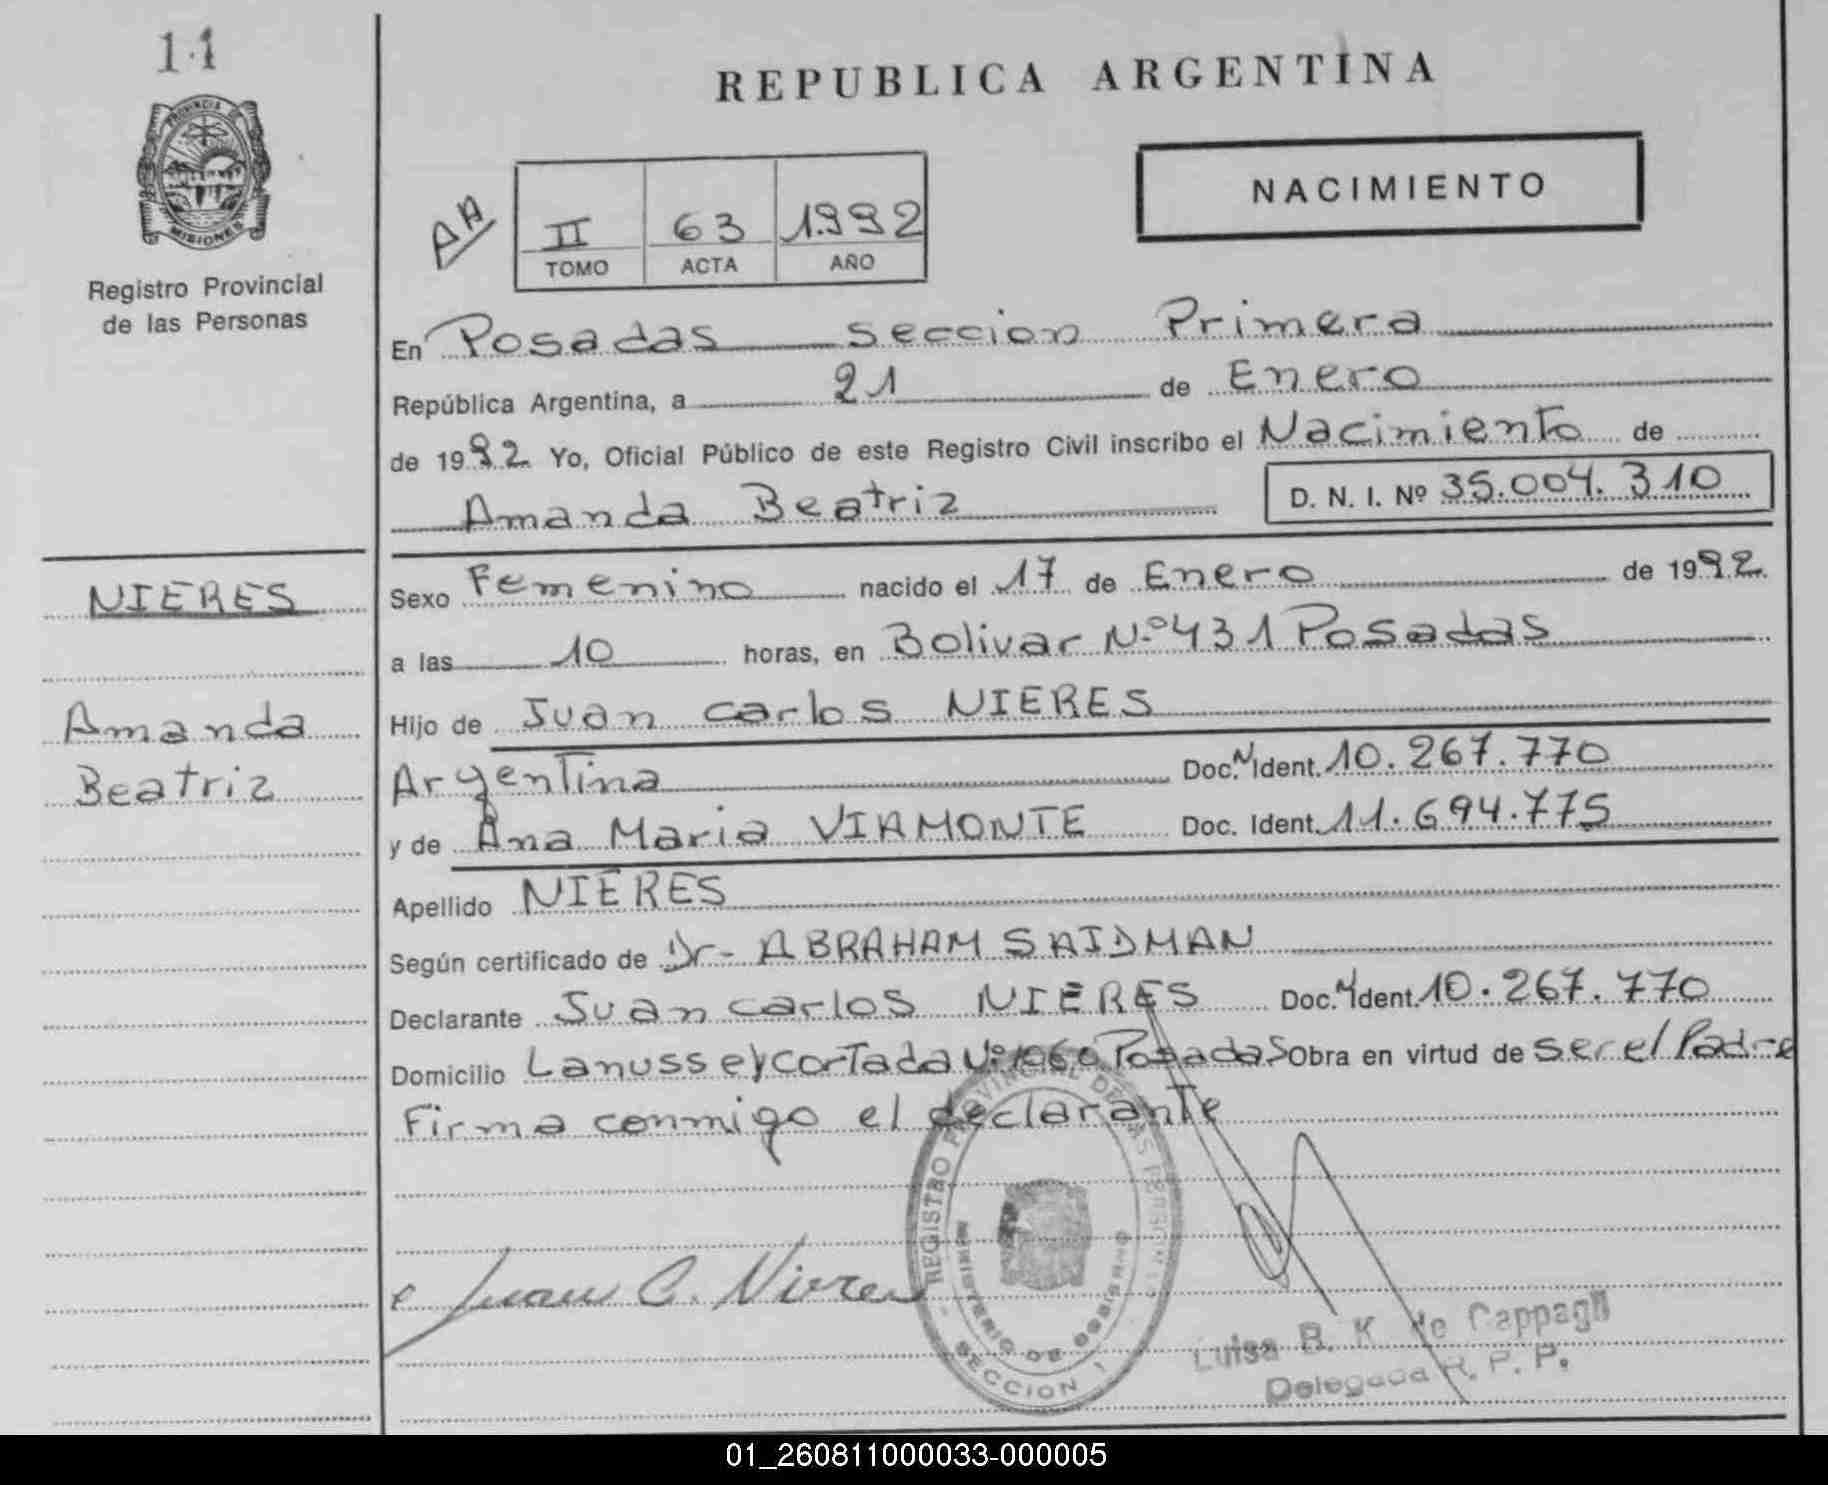 11
PROVINCIA DE
MISIONES
Registro Provincial
de las Personas
REPUBLICA ARGENTINA
NACIMIENTO
AA
II 63 1992
TOMO ACTA AÑO
En Posadas seccion Primera
República Argentina, a 21 de Enero
de 1992 Yo, Oficial Público de este Registro Civil inscribo el Nacimiento de
Amanda Beatriz D. N. I. Nº 35.004.310
NIERES
Amanda
Beatriz
Sexo Femenino nacido el 17 de Enero de 1992.
a las 10 horas, en Bolivar Nº 431 Posadas
Hijo de Juan carlos NIERES
Argentina Doc. N Ident. 10.267.770
y de Ana Maria VIAMONTE Doc. Ident. 11.694.775
Apellido NIERES
Según certificado de Dr- ABRAHAM SAIDMAN
Declarante Juan carlos NIERES Doc. Ident. 10.267.770
Domicilio Lanusse y cortada Nº 1060 Posadas Obra en virtud de ser el Padre
Firma conmigo el declarante
Juan C. Nieres
REGISTRO PROVINCIAL DE LAS PERSONAS
MINISTERIO DE GOBIERNO
SECCION 1
Luisa B. K. de Cappagli
Delegada R. P. P.
01_260811000033-000005